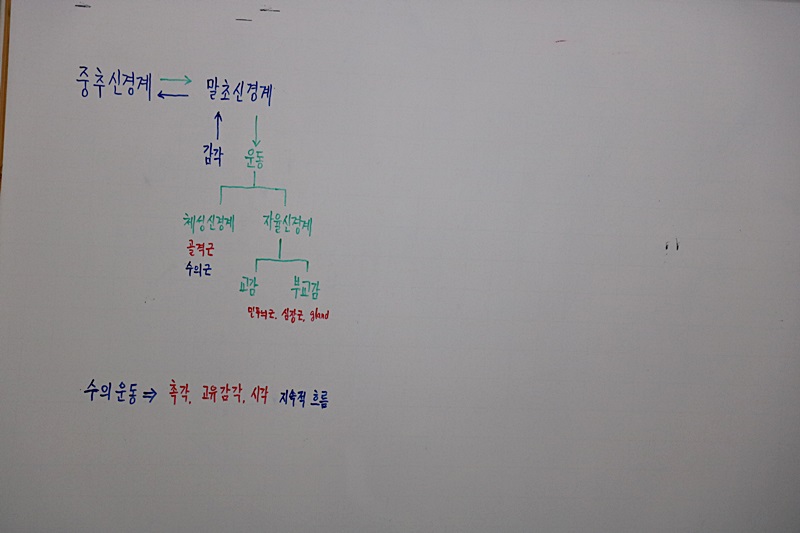 중추신경계 → ← 말초신경계
↑ ↓
감각 운동
체성신경계 자율신경계
골격근
수의근
교감 부교감
민무늬근, 심장근, gland
수의 운동 ⇒ 촉각, 고유감각, 시각 지속적 흐름